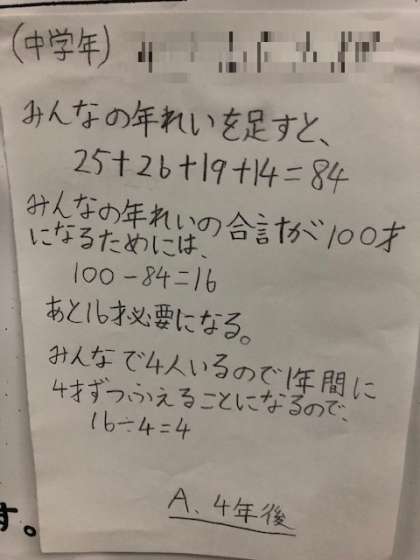 (中学年)
みんなの年れいを足すと、
25+26+19+14=84
みんなの年れいの合計が100才
になるためには、
100-84=16
あと16才必要になる。
みんなで4人いるので1年間に
4才ずつふえることになるので、
16÷4=4
A、4年後
す。